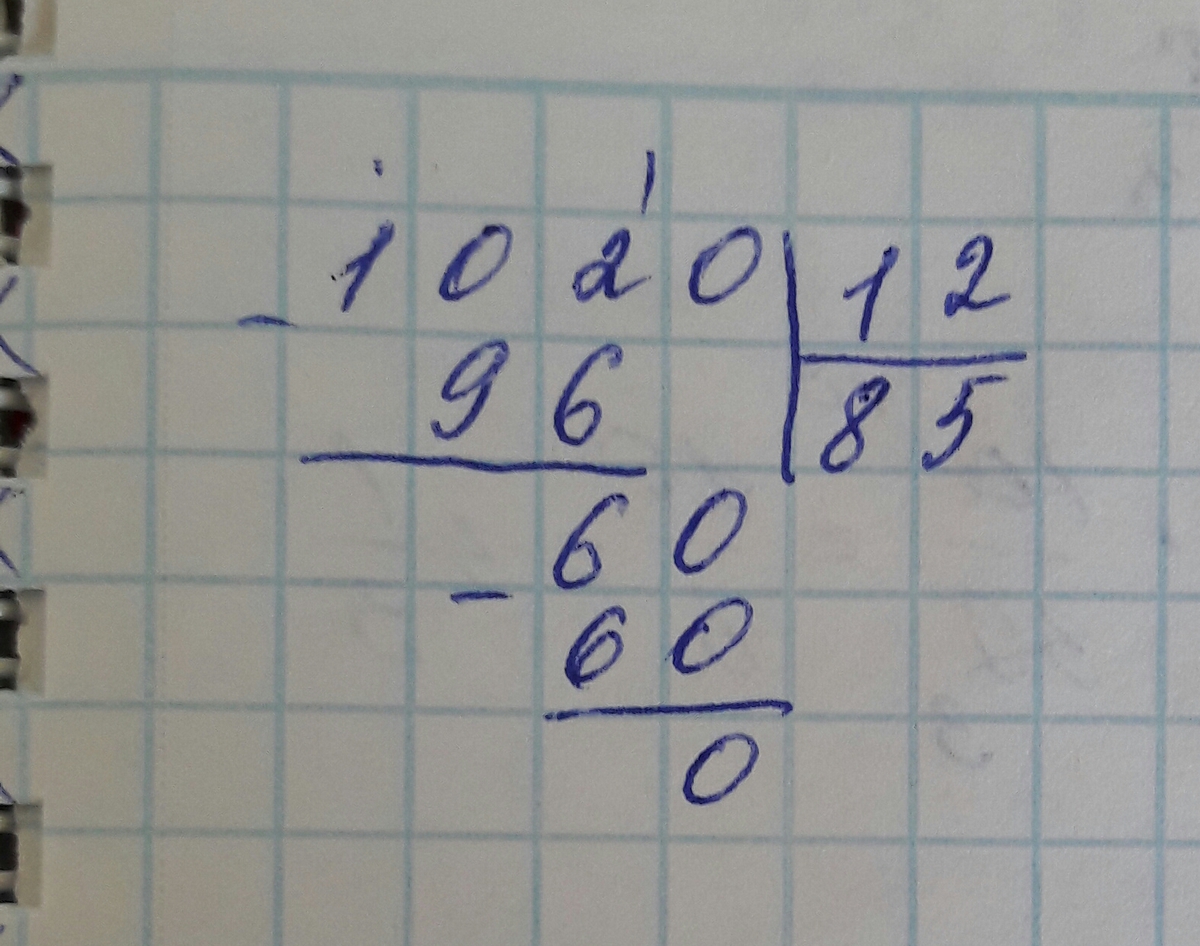 1020 12
- 96 85
60
- 60
0